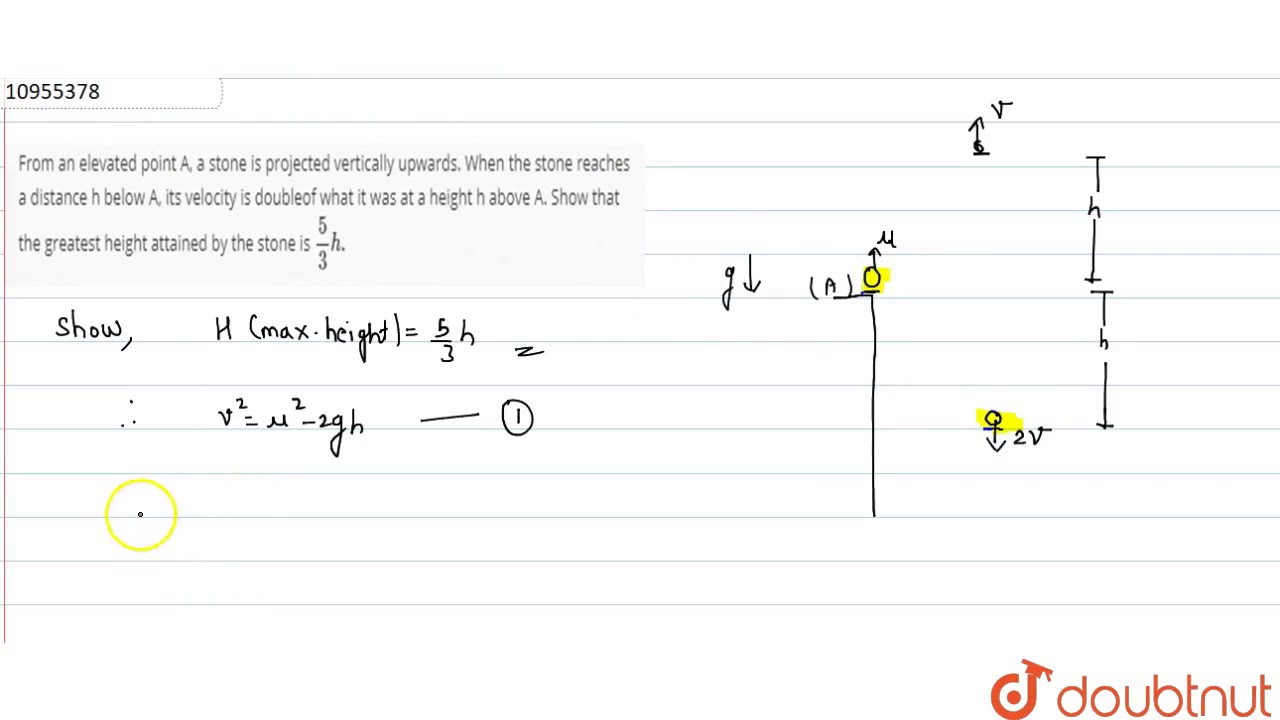 10955378
From an elevated point A, a stone is projected vertically upwards. When the stone reaches
a distance h below A, its velocity is doubleof what it was at a height h above A. Show that
the greatest height attained by the stone is 5/3 h.
Show, H (max. height) = 5/3 h
∴ v² = u² - 2gh — ①
v
h
u
g↓ (A)
h
2v
doubtnut